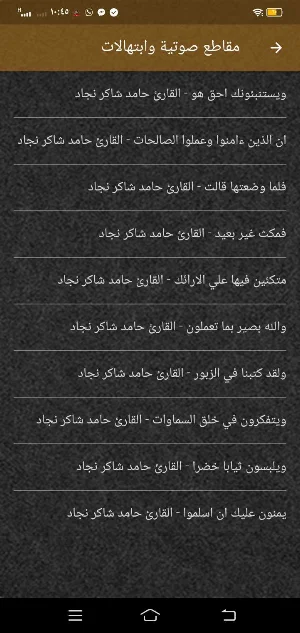 ١٠:٤٥
مقاطع صوتية وابتهالات
ويستنبئونك احق هو - القارئ حامد شاكر نجاد
ان الذين ءامنوا وعملوا الصالحات - القارئ حامد شاكر نجاد
فلما وضعتها قالت - القارئ حامد شاكر نجاد
فمكث غير بعيد - القارئ حامد شاكر نجاد
متكئين فيها علي الارائك - القارئ حامد شاكر نجاد
والله بصير بما تعملون - القارئ حامد شاكر نجاد
ولقد كتبنا في الزبور - القارئ حامد شاكر نجاد
ويتفكرون في خلق السماوات - القارئ حامد شاكر نجاد
ويلبسون ثيابا خضرا - القارئ حامد شاكر نجاد
يمنون عليك ان اسلموا - القارئ حامد شاكر نجاد